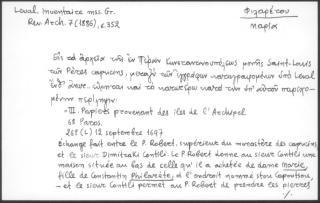 Laval, Inventaire mss. Gr.
Rev. Arch. 7 (1886), σ. 352
Φιλαρέτου
Μαρία
Εἰς τὰ ἀρχεῖα τῆς ἐν Πέραν μονῆς Saint-Louis
τῶν Pères capucins, μεταξὺ τῶν ἐγγράφων ὑπὸ Laval
καὶ τὸ κατωτέρω κατὰ τὴν ὑπ' αὐτοῦ
περίληψιν:
"III. Papiers provenant des îles de l'Archipel
68 Paros.
268 (L) 12 septembre 1697
Echange fait entre le P. Robert, supérieur du monastère des capucins
et le sieur Dimitraki Contili: Le P. Robert donne au sieur Contili une
maison située au bas de celle qu'il a achetée de dame Marcie,
fille de Constantin Philarète, à l'endroit nommé stou Capoutsou,
- et le sieur Contili permet au P. Robert de prendre les pierres
./.